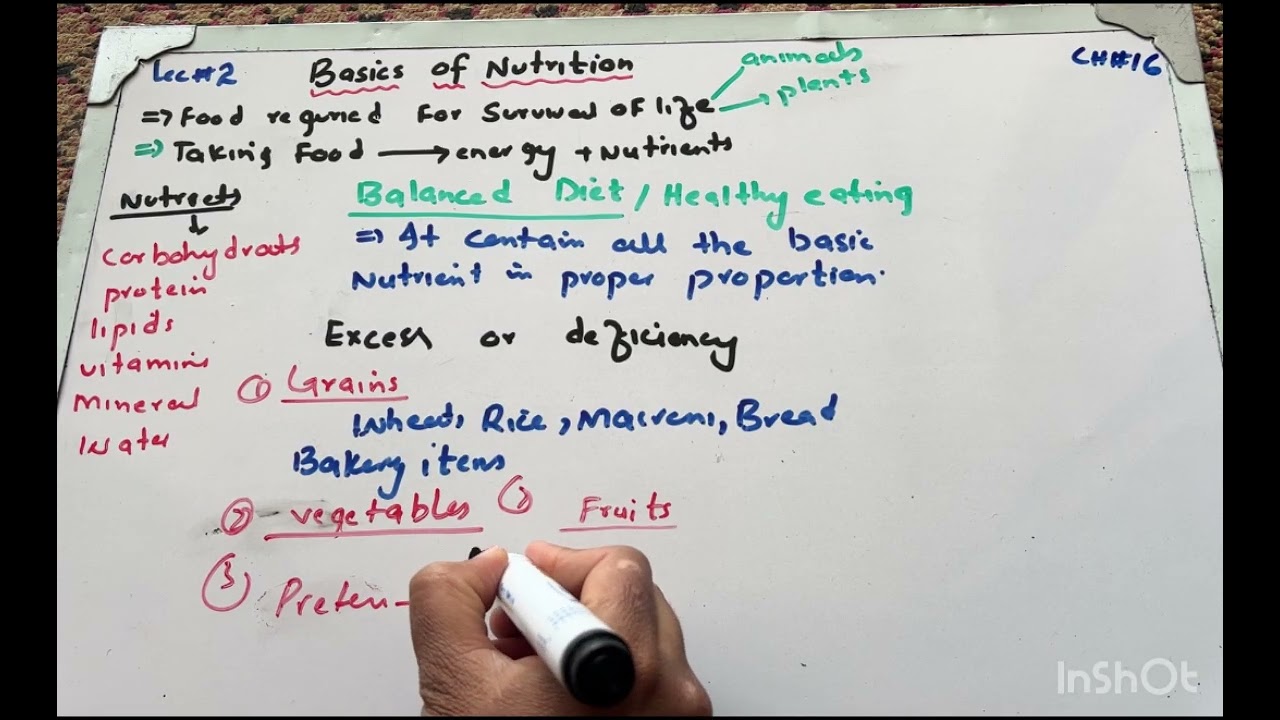 Lec#2 Basics of Nutrition CH#16
animals
=> Food requried For Survival of life → plants
=> Taking Food → energy + Nutrients
Nutriets
Balanced Diet / Healthy eating
=> It contain all the basic
Nutrient in proper propertion.
carbohydrats
protein
lipids
vitamins
Mineral
Water
Excess or deficiency
① Grains
Wheat, Rice, Macroni, Bread
Bakery items
② vegetables
Fruits
③ Protein -
InShOt